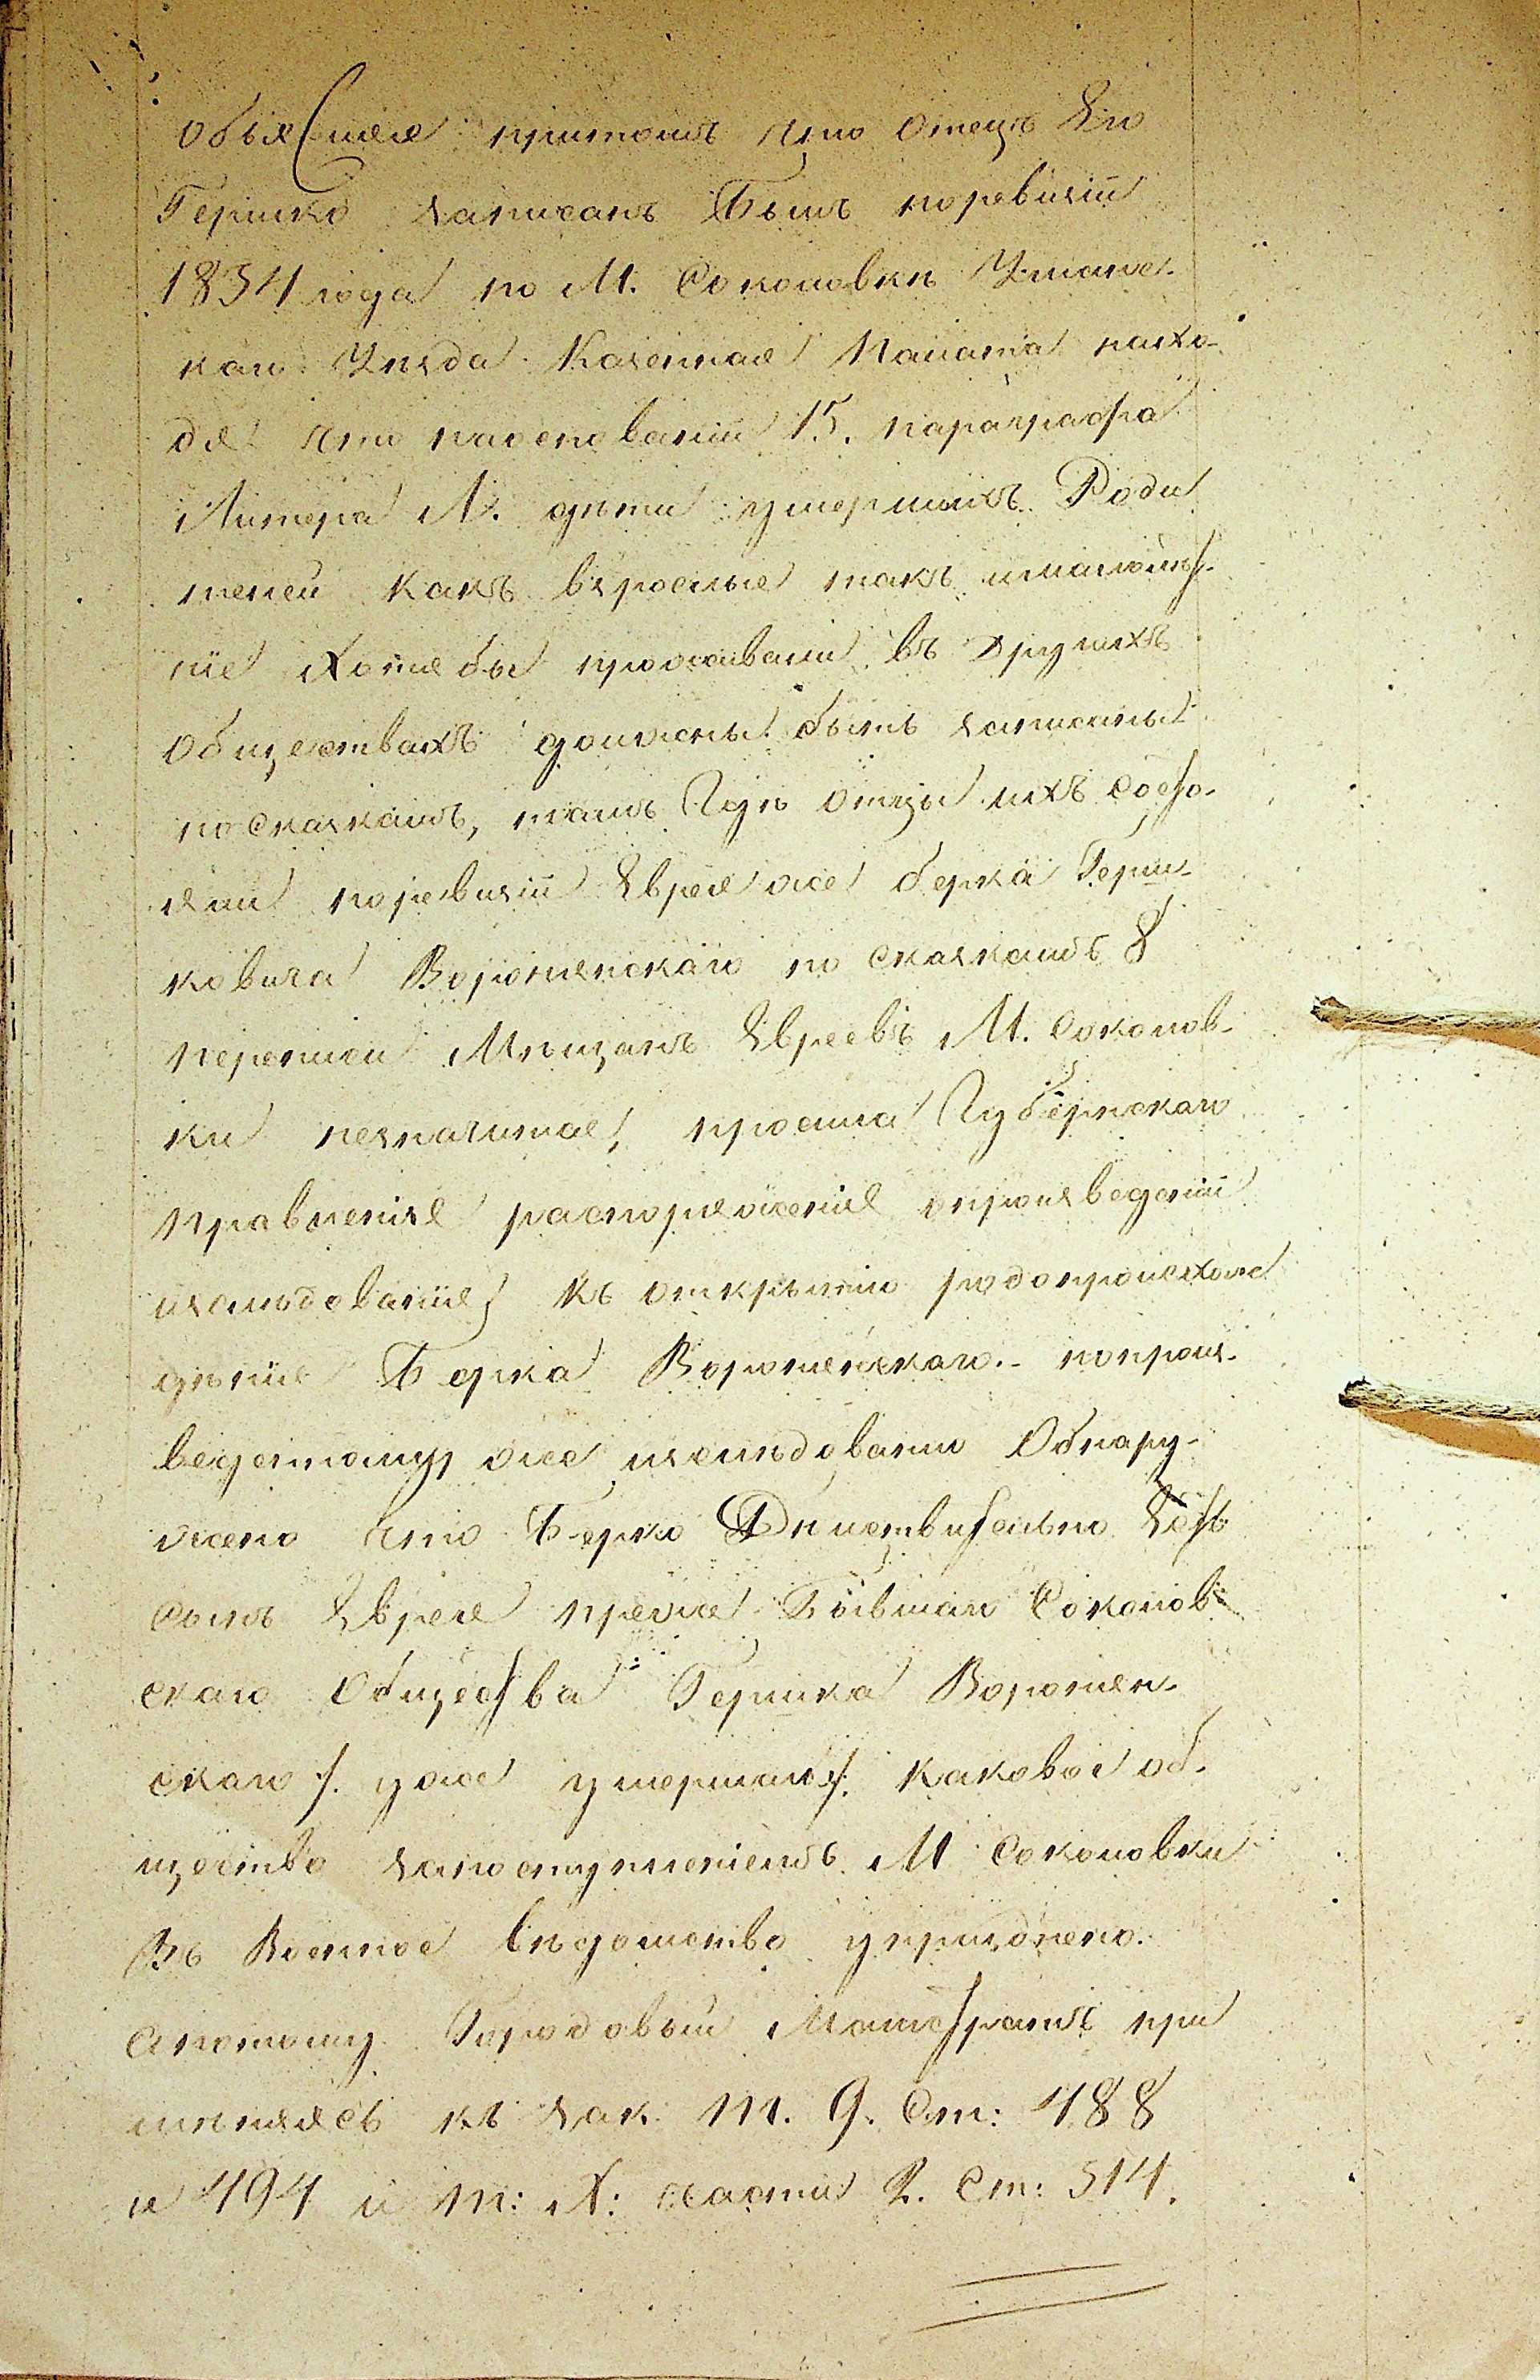 объясняя притомъ что отецъ Его
Гершко записанъ Былъ поревизіи
1834 года по М. Соколовкѣ Уманс-
каго Уѣзда Казенная Палата нахо-
дя что наоснованіи 15. параграфа
Литера А. дѣти умершихъ Роди
телей какъ взрослые такъ ималолѣт-
ніе хотя бы проживали въ другихъ
обществахъ должны быть записаны
по сказкамъ, тамъ Гдѣ отцы ихъ состо-
яли поревизіи Еврея же берка Герш-
ковича Воронянскаго по сказкамъ 8
переписи Мѣщанъ Евреевъ М. Соколов-
ки незначится, просила Губернскаго
правленія распоряженія опроизведеніи
изслѣдованія къ открытію родопроисхож
дѣнія Берка Воронянскаго.- попроиз-
веденному же изслѣдованію Обнару-
жено что Берко Дѣйствительно Есть
сынъ Еврея прежде Бывшаго Соколов-
скаго Общества Гершка Воронян-
скаго /. уже умершаго /. каковое об-
щество запоступленіемъ М Соколовки
Въ Военное вѣдомство упразднено.
Апотому Городовый Магистратъ при
мѣняясь къ зак. т. 9. Ст: 488
и 494 и т: X: части 2. Ст: 514.